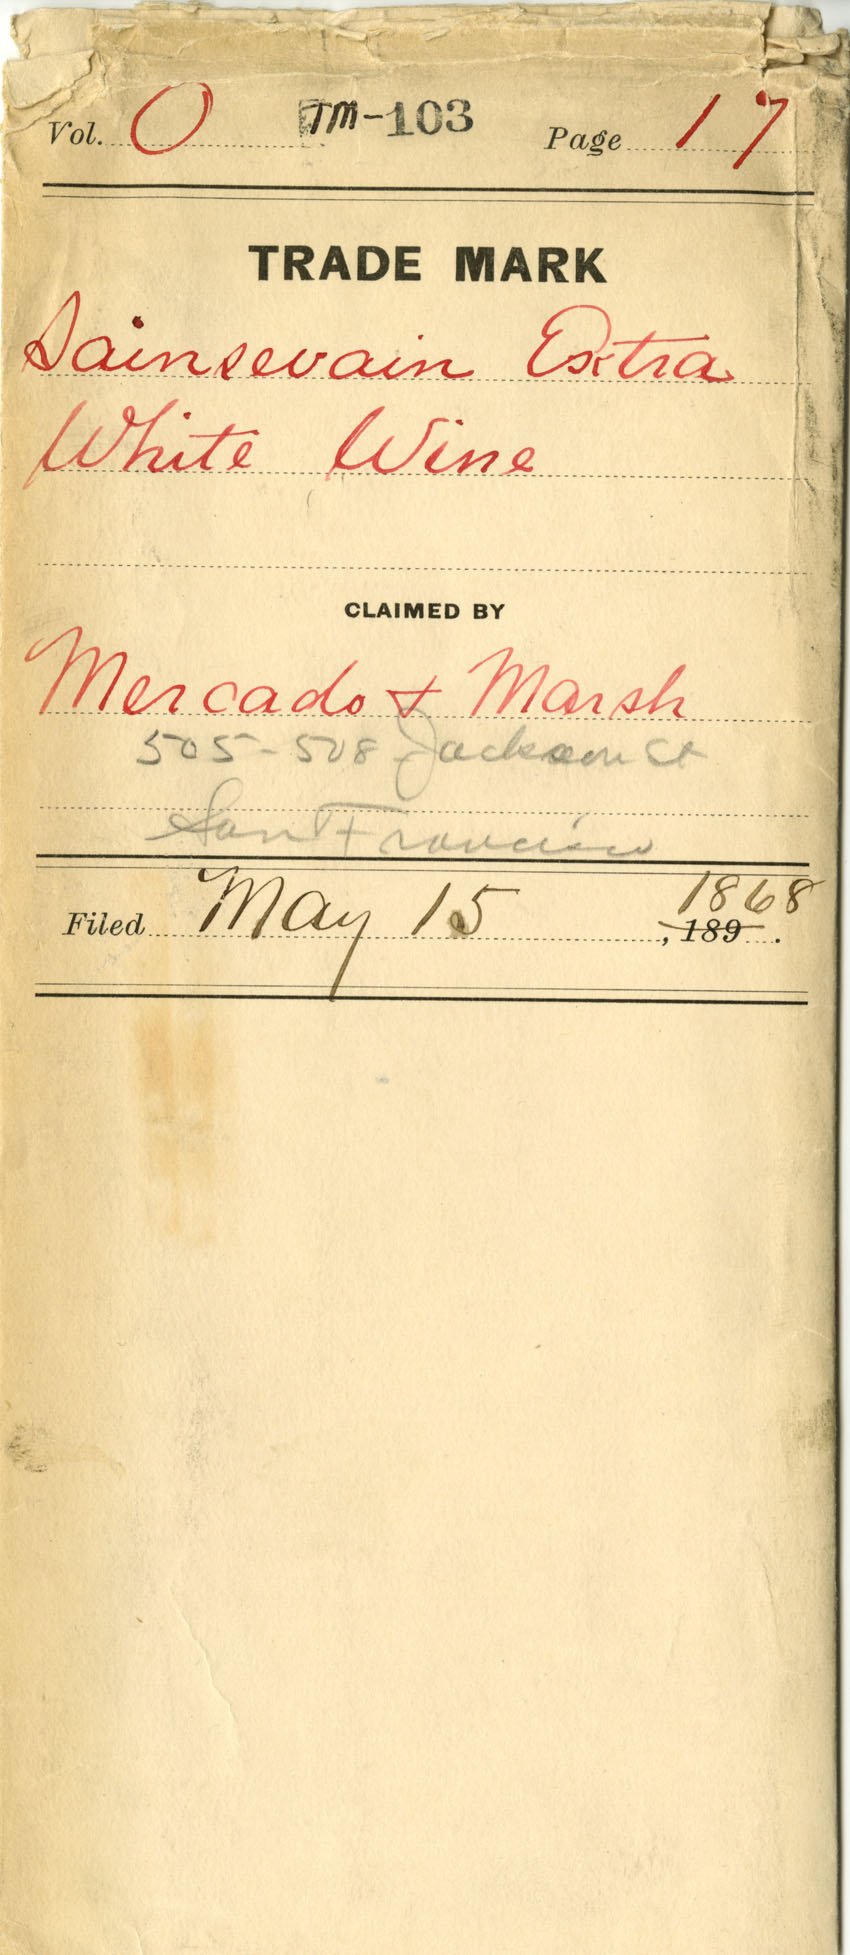 Vol. O TM-103 Page 17
TRADE MARK
Sainsevain Extra
White Wine
CLAIMED BY
Mercado & Marsh
505-508 Jackson St
San Francisco
1868
Filed May 15, 189 .